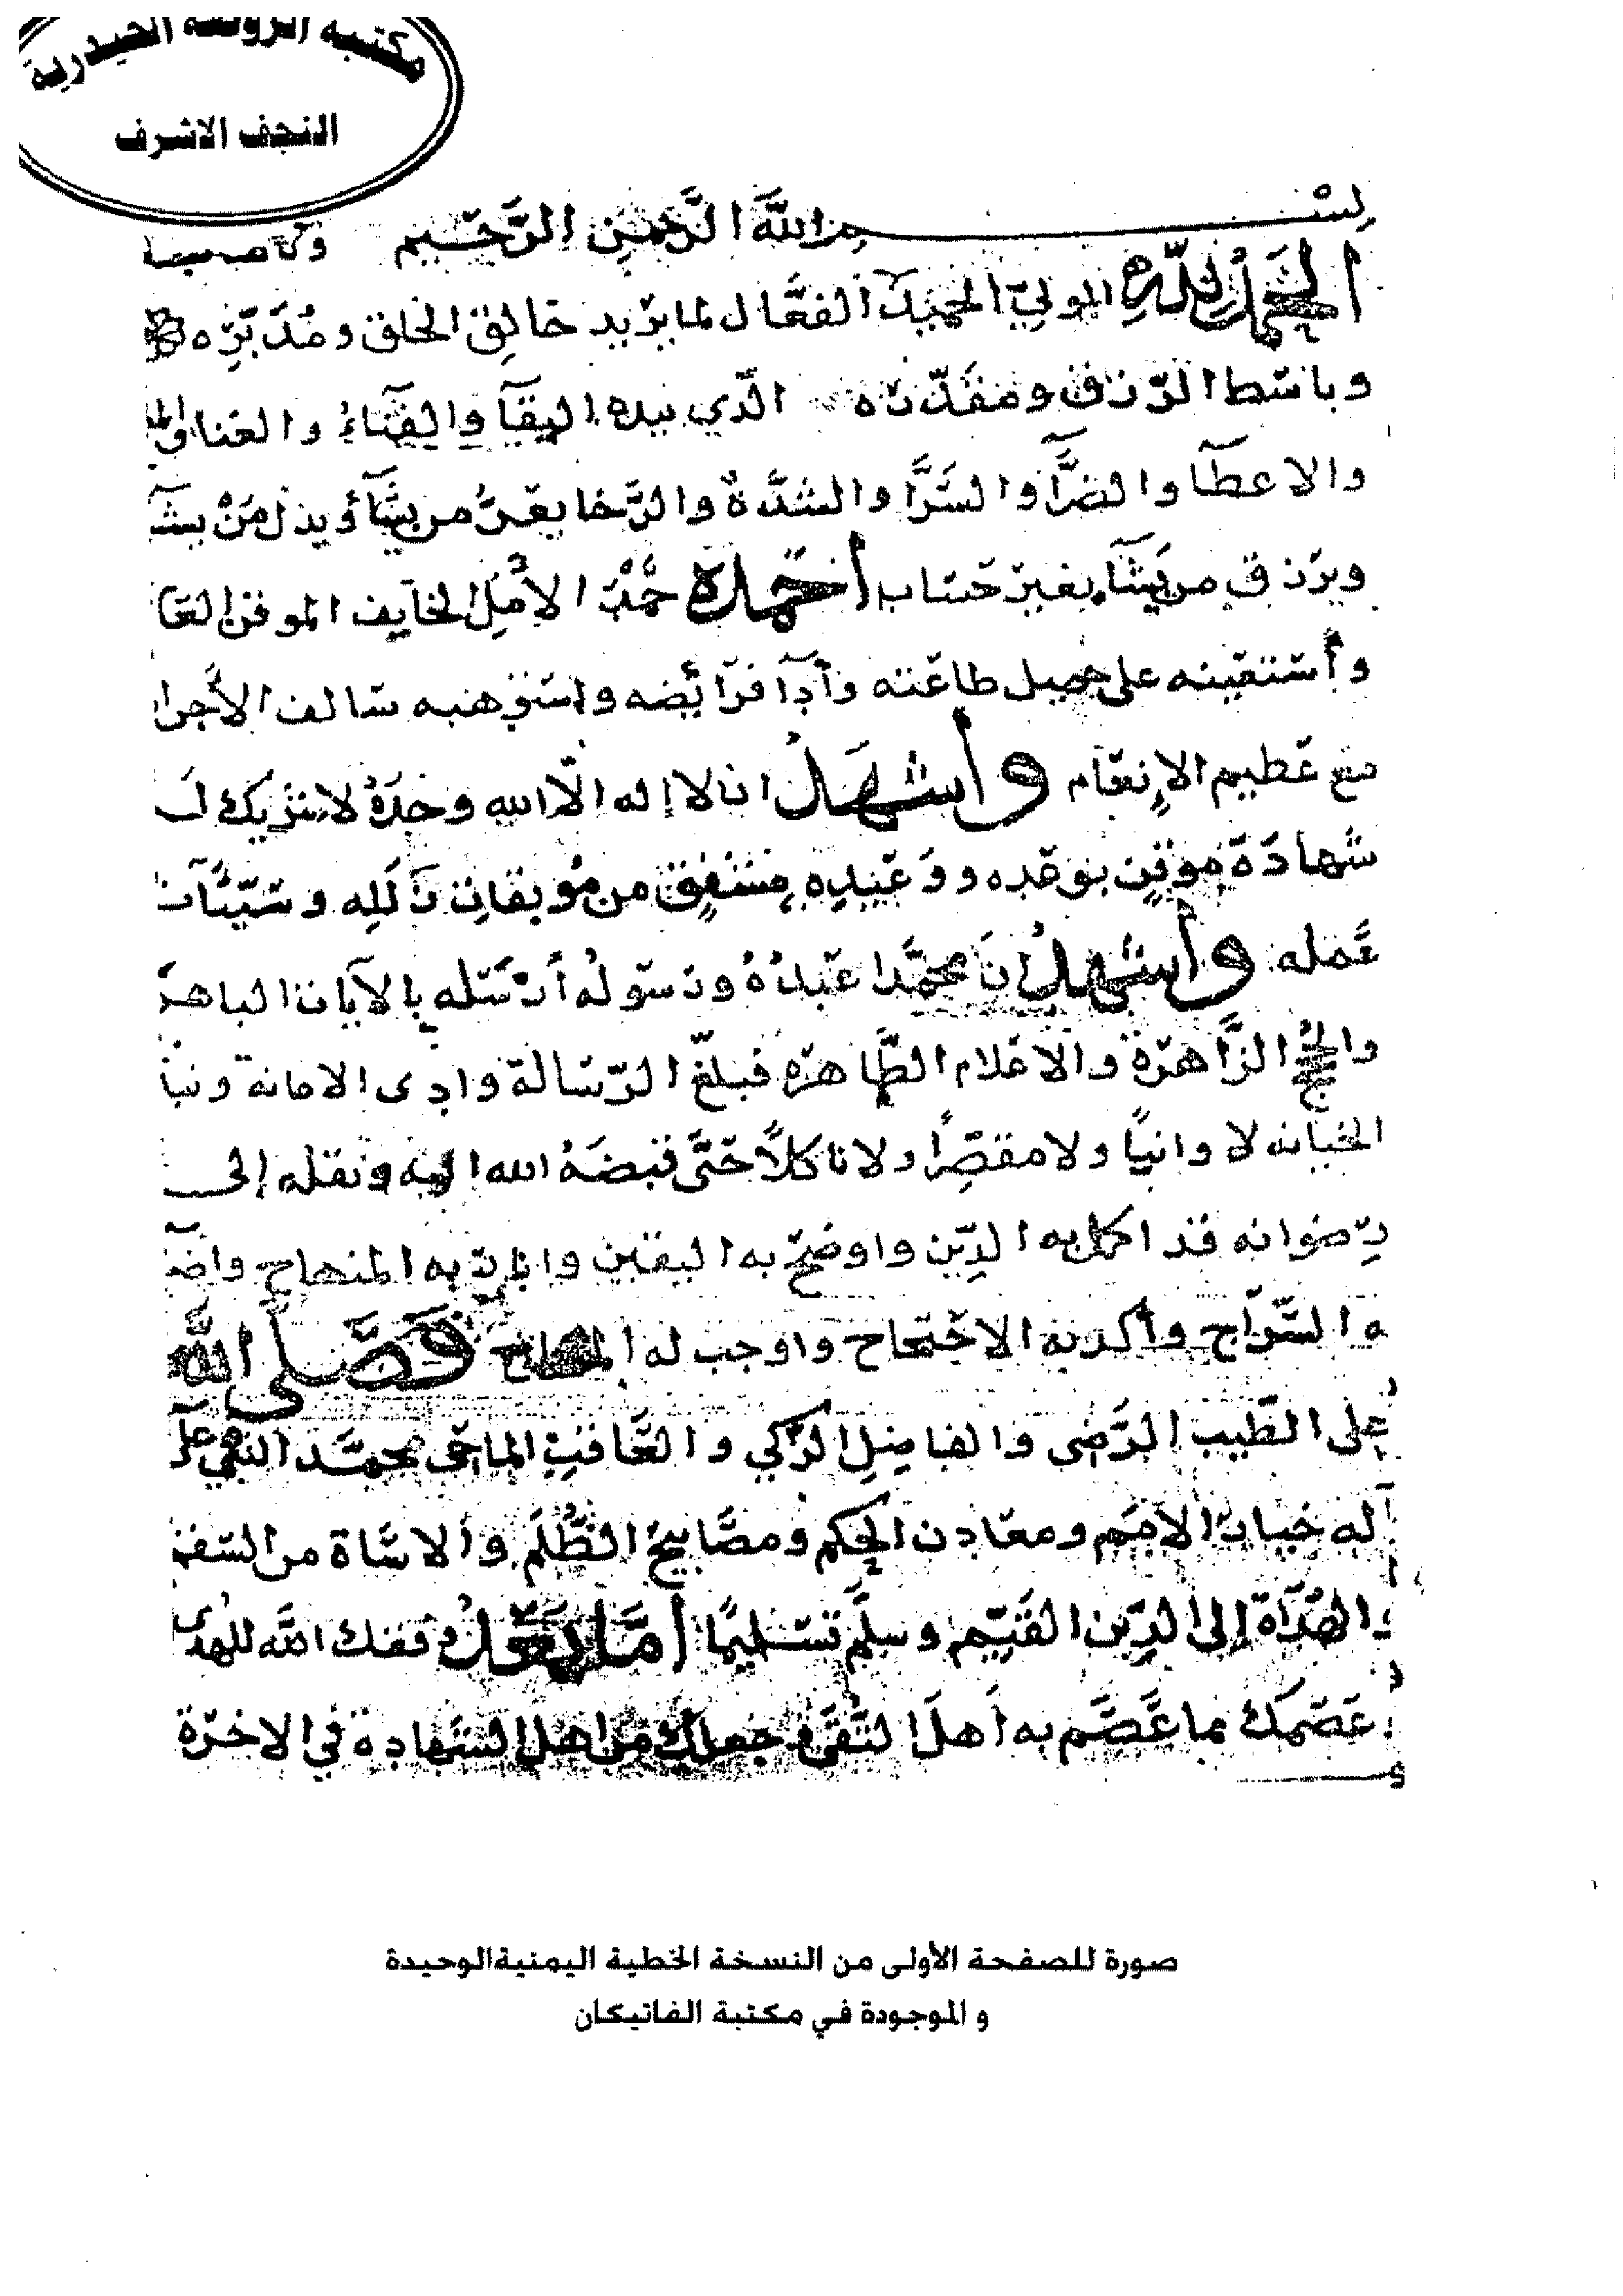 مكتبة الروضة الحيدرية
النجف الاشرف
بسم الله الرَّحمن الرَّحيم
الحَمْدُ لِلّهِ الموليّ الحميد الفعَّال لما يريد خالِق الخلق ومُدَبِّرِه
وباسط الرّزق ومقَدّره الّذي بيده البقآ والفَنَاءُ والغنا
والاعطآ والضرَّآ والسَرَّا والشدَّة والرَّخا يعزُّ من يشَآء ويذل مَنْ يشآ
ويرزق من يَشَآ بغير حساب أحمده حَمْدَ الآمِلِ الخايف الموقن
وأستعينه على جميل طاعته وأدآ فرايَضه واستوهبه سالف الأجرا
مع عَظيم الإنعام وأشهَدُ ان لا إله الّا الله وحدَهُ لا شريك لـ
شهادَةَ موقنٍ بوعده ووَعيدِه مشفقٍ من مُوبقات زَلَلِه وسَيّئآت
عَمله وأشهدُ انَ محمَّدا عَبدُهُ ورسولُه أرسَله بالآيات الباهرَ
والحُجج الزَّاهرة والاعلام الظَّاهره فبلغّ الرّسالة وادى الامانة ونبا
الخيانه لا وانيًا ولا مقصِّرًا ولا ناكلًا حَتَّى قبضَهُ الله اليه ونقله إلى
رِضوانه قد اكمل به الدِّين واوضح به اليقين وابان به المنهاج واضآ
ه السّراج وأكد به الاحتجاج واوجب له فَصَّلى الله
على الطَّيب الرَّضى والفاضِلِ الزَّكي والعَاقبِ الماحى محمَّد النبي وعلى
آله خيارُ الأمَم ومعَادن الحِكم ومصَابيحُ الظُّلَم والاسَاة من السَقم
والهُدَاة إلى الدِّين القَيّم وسلّم تسليمًا أمَّا بَعْدُ وفقك اللَّه للهدى
وعَصَمكَ بما عَصَم به أهلَ التُقَى وجعلك من اهل السَّعادة في الاخرَة
صورة للصفحة الأولى من النسخة الخطية اليمنية الوحيدة
و الموجودة في مكتبة الفاتيكان